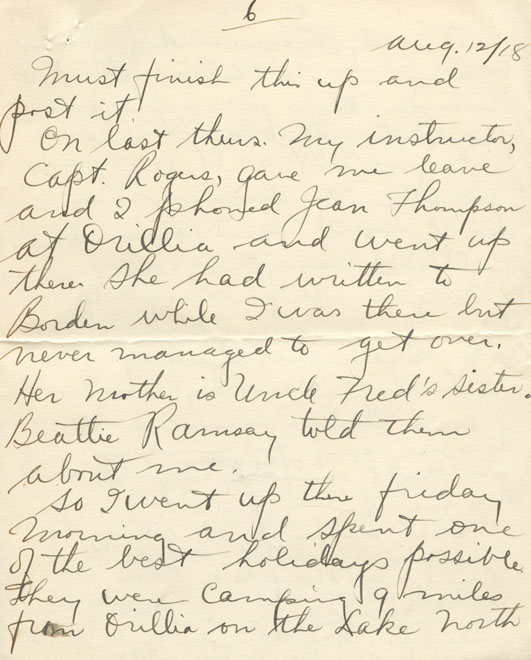 6
Aug. 12/18
Must finish this up and
post it
On last thurs. My instructor,
Capt. Rogers, gave me leave
and I phoned Jean Thompson
at Orillia and went up
there. She had written to
Borden while I was there but
never managed to get over.
Her Mother is Uncle Fred's sister.
Beattie Ramsay told them
about me.
So I went up there friday
morning and spent one
of the best holidays possible.
They were camping 9 miles
from Orillia on the Lake North